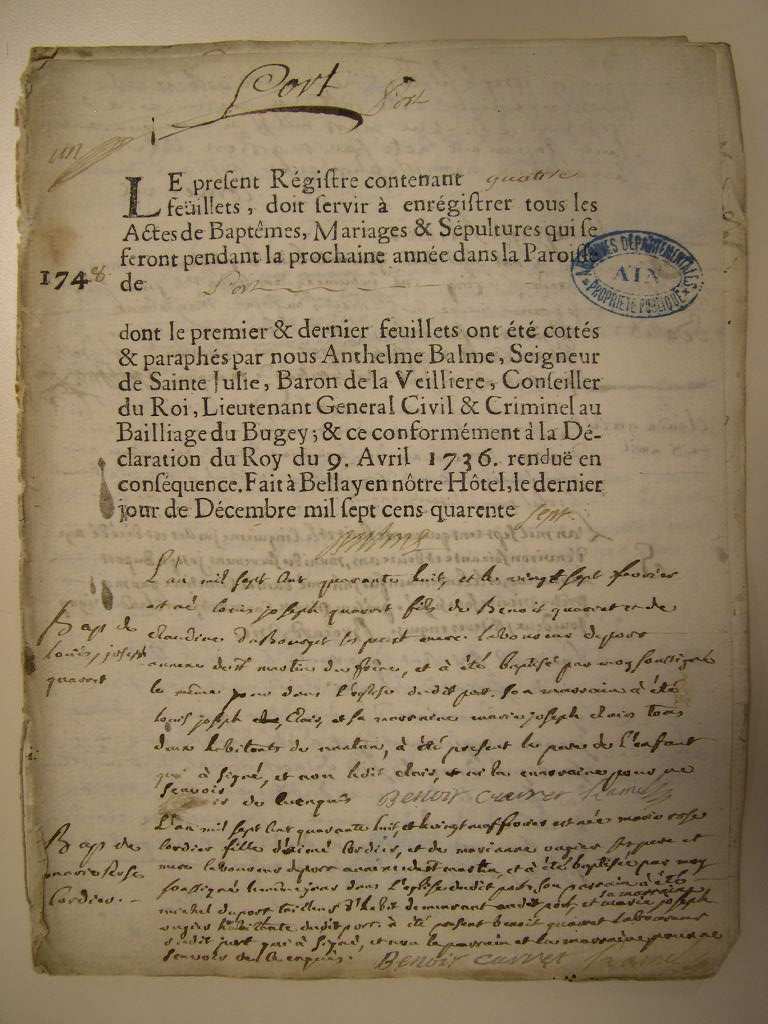 Port Port
un
LE present Régistre contenant quattre
feüillets, doit servir à enrégistrer tous les
Actes de Baptêmes, Mariages & Sépultures qui se
feront pendant la prochaine année dans la Paroisse
1748
de Port
ARCHIVES DÉPARTEMENTALES
AIN
PROPRIÉTÉ PUBLIQUE
dont le premier & dernier feuillets ont été cottés
& paraphés par nous Anthelme Balme, Seigneur
de Sainte Julie, Baron de la Veilliere, Conseiller
du Roi, Lieutenant General Civil & Criminel au
Bailliage du Bugey; & ce conformément à la Dé-
claration du Roy du 9. Avril 1736. renduë en
conséquence. Fait à Bellay en nôtre Hôtel, le dernier
jour de Décembre mil sept cens quarente sept.
L'an mil sept cent quarante huit, et le vingt sept fevrier
est né louis joseph quarret fils de Benoit quarret et de
Bap. de
louis joseph
quarret
claudine ses pere et mere laboureur de port
annexe de st martin du frêne, et à été baptisé par moy soussigné
le même jour dans l'eglise dudit port. son parrain à été
louis joseph clair, et sa marraine marie joseph clair tous
deux habitants de nantua, à été present le pere de l'enfant
qui à signé, et non ledit clair, et ni la marraine pour ne
sçavoir de ce enquis Benoit
L'an mil sept cent quarante huit, et le vingt neuf fevrier est née marie rose
Bap. de
marie rose
Cordier. -
Cordier fille d'aimé Cordier, et de ses pere et
mere laboureur de port annexe de st martin, et à été baptisée par moy
soussigné le même jour dans l'eglise dudit port, son parrain à été
michel duport tailleur d'habit demeurant audit port, et la marraine marie joseph
habitante dudit port. à été present benoit quarret laboureur
dudit port qui à signé, et non le parrain et la marraine pour ne
sçavoir de ce enquis. Benoit